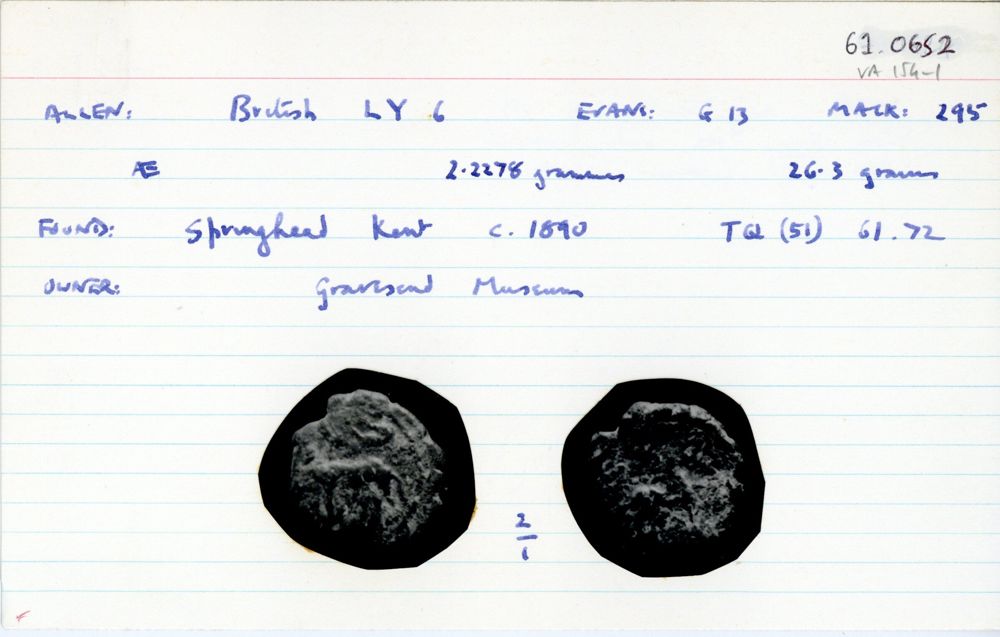 61.0652
VA 154-1
ALLEN: British LY 6 EVANS: G 13 MACK: 295
Æ 2.2278 grammes 26.3 grains
FOUND: Springhead Kent c. 1890 TQ (51) 61.72
OWNER: Gravesend Museum
2
1